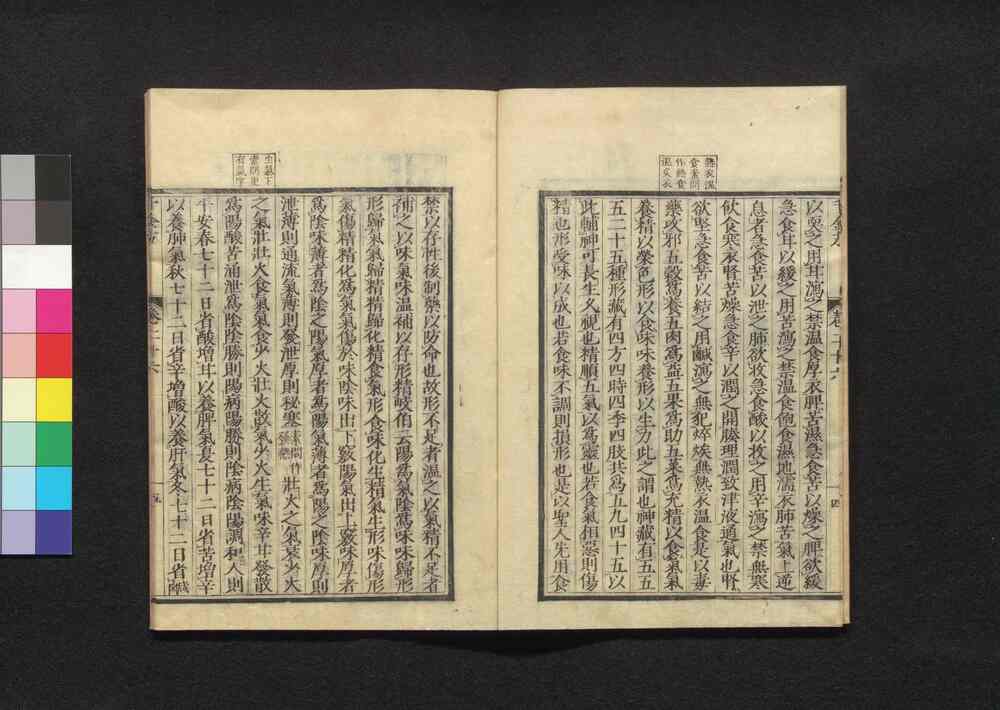 熱衣溫
食素問
作熱食
溫炙衣
以耎之用甘瀉之禁溫食厚衣脾苦濕急食苦以燥之脾欲緩
急食甘以緩之用苦瀉之禁溫食飽食濕地濡衣肺苦氣上逆
息者急食苦以泄之肺欲收急食酸以收之用辛瀉之禁無寒
飲食寒衣腎苦燥急食辛以潤之開腠理潤致津液通氣也腎
欲堅急食苦以結之用鹹瀉之無犯焠㶼無熱衣溫食是以毒
藥攻邪五穀爲養五肉爲益五果爲助五菜爲充精以食氣氣
養精以榮色形以食味味養形以生力此之謂也神藏有五五
五二十五種形藏有四方四時四季四肢共爲五九四十五以
此輔神可長生久視也精順五氣以爲靈也若食氣相惡則傷
精也形受味以成也若食味不調則損形也是以聖人先用食
卷二十六
四
生氣下
素問更
有氣字
禁以存性後制藥以防命也故形不足者溫之以氣精不足者
補之以味氣味溫補以存形精岐伯云陽爲氣陰爲味味歸形
形歸氣氣歸精精歸化精食氣形食味化生精氣生形味傷形
氣傷精精化爲氣氣傷於味陰味出下竅陽氣出上竅味厚者
爲陰味薄者爲陰之陽氣厚者爲陽氣薄者爲陽之陰味厚則
泄薄則通流氣薄則發泄厚則秘塞素問作發熱壯火之氣衰少火
之氣壯壯火食氣氣食少火壯火散氣少火生氣味辛甘發散
爲陽酸苦涌泄爲陰陰勝則陽病陽勝則陰病陰陽調和人則
平安春七十二日省酸增甘以養脾氣夏七十二日省苦增辛
以養肺氣秋七十二日省辛增酸以養肝氣冬七十二日省鹹
千金方
卷二十六
五